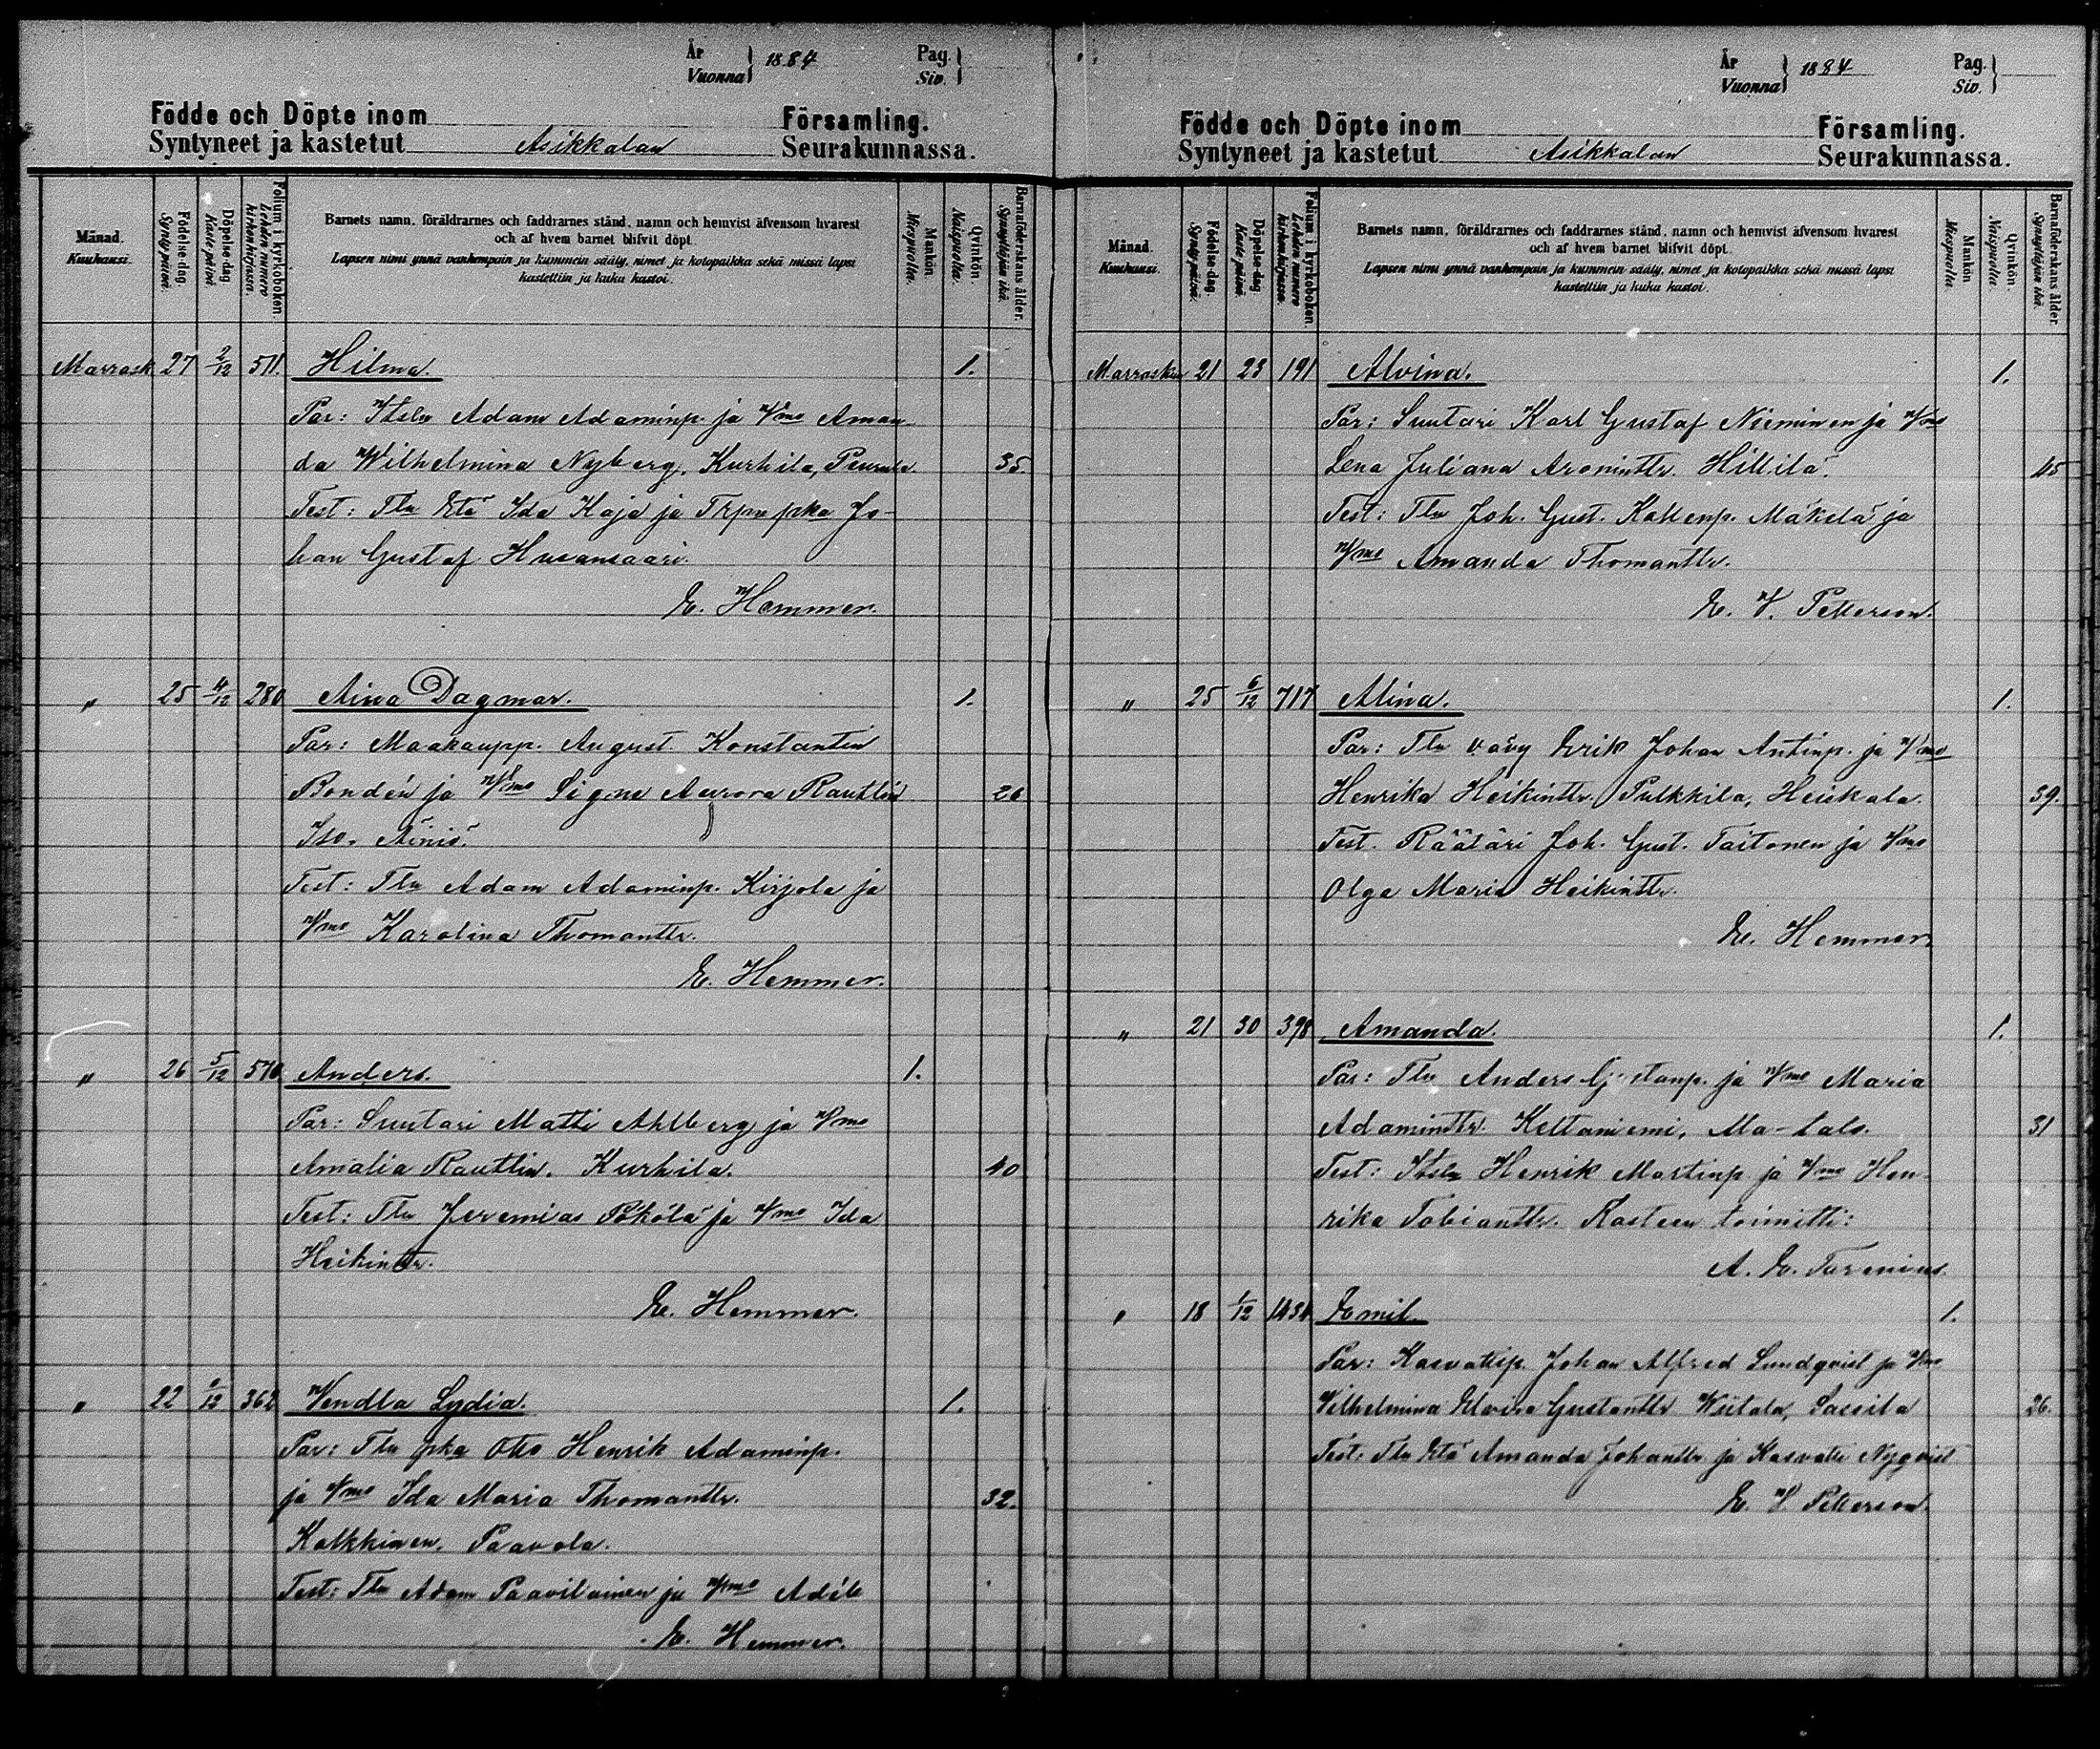 År
Vuonna } 1884
Pag.
Siv. }
Födde och Döpte inom Församling.
Syntyneet ja kastetut Asikkalan Seurakunnassa.
Månad.
Kuukausi.
Födelse-dag.
Syntypäivä.
Döpelse-dag
Kaste päivä
Folium i kyrkoboken.
Lehden numero
kirkonkirjassa.
Barnets namn, föräldrarnes och faddrarnes stånd, namn och hemvist äfvensom hvarest
och af hvem barnet blifvit döpt.
Lapsen nimi ynnä vanhempain ja kummein sääty, nimet ja kotopaikka sekä missä lapsi
kastettiin ja kuka kastoi.
Mankön
Miespuolta.
Qvinkön.
Naispuolta.
Barnaföderskans ålder.
Synnyttäjän ikä.
Marrask 27 2/12 511. Hilma. 1.
Par: Itsln Adam Adaminp. ja Vmo Aman
da Wilhelmina Nyberg. Kurhila, 35.
Test: Tln Ida Kaja ja pka Jo-
han Gustaf Husansaari.
E. Hemmer.
" 25 4/12 280 Aina Dagmar. 1.
Par: Maakaupp. August Konstantin
Bondén ja Vmo Signe Aurora Rautlin 26
Iso-Äiniö.
Test: Tln Adam Adaminp. Kirjola ja
Vmo Karolina Thomanttr.
E. Hemmer.
" 26 5/12 510 Anders. 1.
Par: Suutari Matti Ahlberg ja Vmo
Amalia Rautlin. Kurhila. 40
Test: Tln Jeremias Pökölä ja Vmo Ida
Heikinttr.
E. Hemmer.
" 22 /12 362 Vendla Lydia. 1.
Par: Tln pka Otto Henrik Adaminp.
ja Vmo Ida Maria Thomanttr. 32.
Kalkkinen. Paavola.
Test: Tln Adam Paavilainen ja Vmo Adéle
E. Hemmer.
År
Vuonna } 1884
Pag.
Siv. }
Födde och Döpte inom Församling.
Syntyneet ja kastetut Asikkalan Seurakunnassa.
Månad.
Kuukausi.
Födelse-dag.
Syntypäivä.
Döpelse-dag
Kaste päivä
Folium i kyrkoboken.
Lehden numero
kirkonkirjassa.
Barnets namn, föräldrarnes och faddrarnes stånd, namn och hemvist äfvensom hvarest
och af hvem barnet blifvit döpt.
Lapsen nimi ynnä vanhempain ja kummein sääty, nimet ja kotopaikka sekä missä lapsi
kastettiin ja kuka kastoi.
Mankön
Miespuolta.
Qvinkön
Naispuolta
Barnaföderskans ålder.
Synnyttäjän ikä.
Marraskun 21 23 191 Alvina. 1.
Par: Suutari Karl Gustaf Nieminen ja Vmo
Lena Juliana Aroninttr. Hillilä. 45
Test: Tln Joh. Gust. Kallenp. Mäkelä ja
Vmo Amanda Thomanttr.
E. V. Petterson.
" 25 6/12 717 Alina. 1.
Par: Tln vävy Erik Johan Antinp. ja Vmo
Henrika Heikinttr. Pulkkila, Heiskala. 39.
Test. Räätäri Joh. Gust. Taitonen ja Vmo
Olga Maria Heikinttr.
E. Hemmer.
" 21 30 398 Amanda. 1.
Par: Tln Anders Gustanp. ja Vmo Maria
Adaminttr. Keltaniemi, Ma-talo. 31
Test: Itsln Henrik Martinp ja Vmo Hen-
rika Tobianttr. Kasteen toimitti:
A. E. Forenius.
" 18 1/12 1434 Emil. 1.
Par: Kasvattip. Johan Alfred Lundqvist ja Vmo
Vilhelmina Elvira Gustanttr Wiitala, Sassila 26.
Test: Tln Amanda Johanttr. ja Kasvatti Nyqvist
E. V. Petterson.